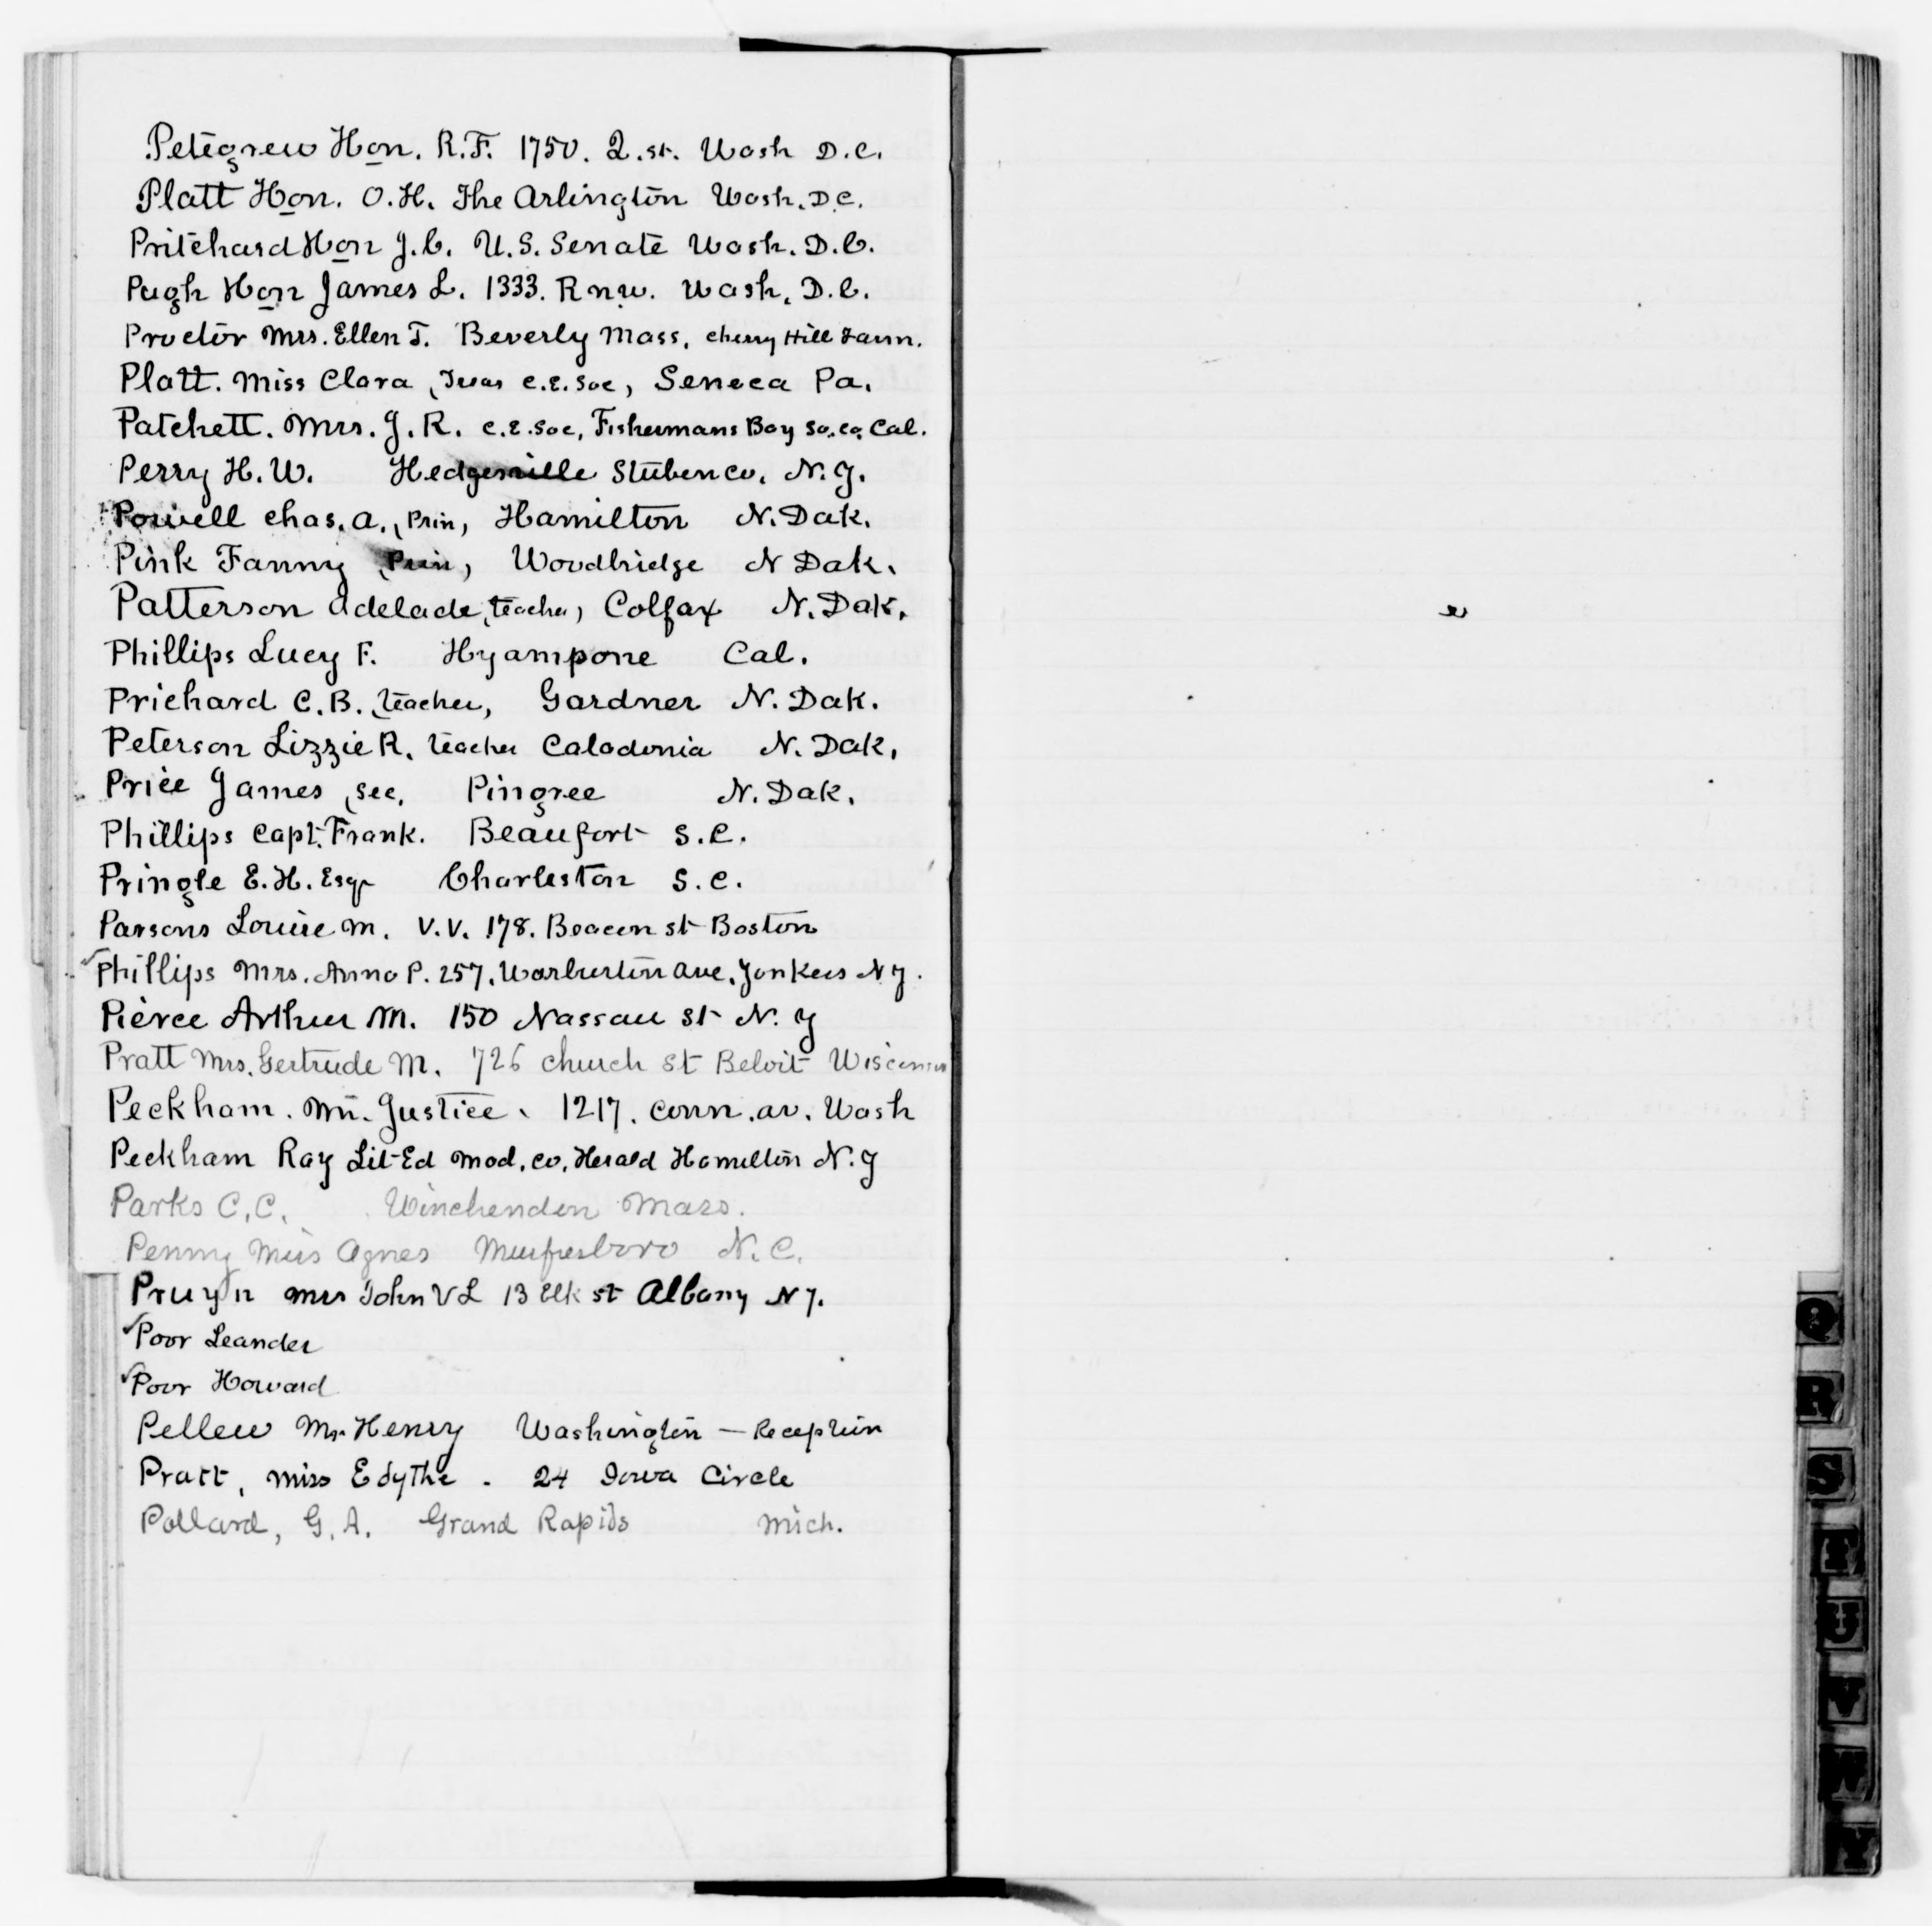 Petigrew Hon. R.F. 1750. Q. st. Wash D.C.
Platt Hon. O.H. The Arlington Wash. D.C.
Pritchard Hon J.C. U.S. Senate Wash. D.C.
Pugh Hon James L. 1333. R n.w. Wash. D.C.
Proctor Mrs. Ellen T. Beverly Mass, Cherry Hill Farm.
Platt. Miss Clara (Treas C.E. Soc, Seneca Pa.
Patchett. Mrs. J. R. C.E. Soc, Fishermans Bay So. Co. Cal.
Perry H. W. Hedgesville Stuben Co. N.Y.
Powell Chas. A. (Prin, Hamilton N. Dak.
Pink Fanny (Prin, Woodbridge N Dak.
Patterson Adelade (teacher, Colfax N. Dak.
Phillips Lucy F. Hyampone Cal.
Prichard C.B. (teacher, Gardner N. Dak.
Peterson Lizzie R. teacher Caladonia N. Dak.
Price James (sec. Pingree N. Dak.
Phillips Capt. Frank. Beaufort S.C.
Pringle E. H. Esqr Charleston S.C.
Parsons Louise M. V.V. 178. Beacon st Boston
✓Phillips Mrs. Anna P. 257. Warburton Ave. Yonkers N Y.
Pierce Arthur M. 150 Nassau St N. Y
Pratt Mrs. Gertrude M. 726 Church St Beloit Wisconsin
Peckham. Mr. Justice. 1217. Conn. av. Wash
Peckham Ray Lit-Ed Mad. Co. Herald Hamilton N. Y
Parks C.C. Winchendon Mass.
Penny Miss Agnes Murfresboro N.C.
Pruyn Mrs John V L 13 Elk st Albany N Y.
✓Poor Leander
✓Poor Howard
Pellew Mr. Henry Washington — Reception
Pratt, Miss Edythe. 24 Iowa Circle
Pollard, G. A. Grand Rapids Mich.
Q
R
S
T
U
V
W
Y